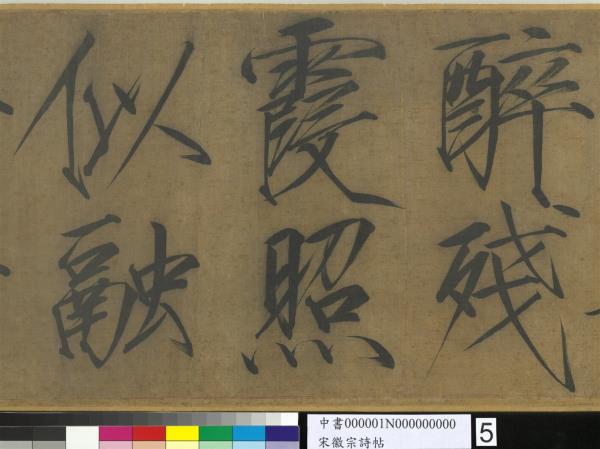 醉殘
霞照
似融
中書000001N000000000
宋徽宗詩帖
5